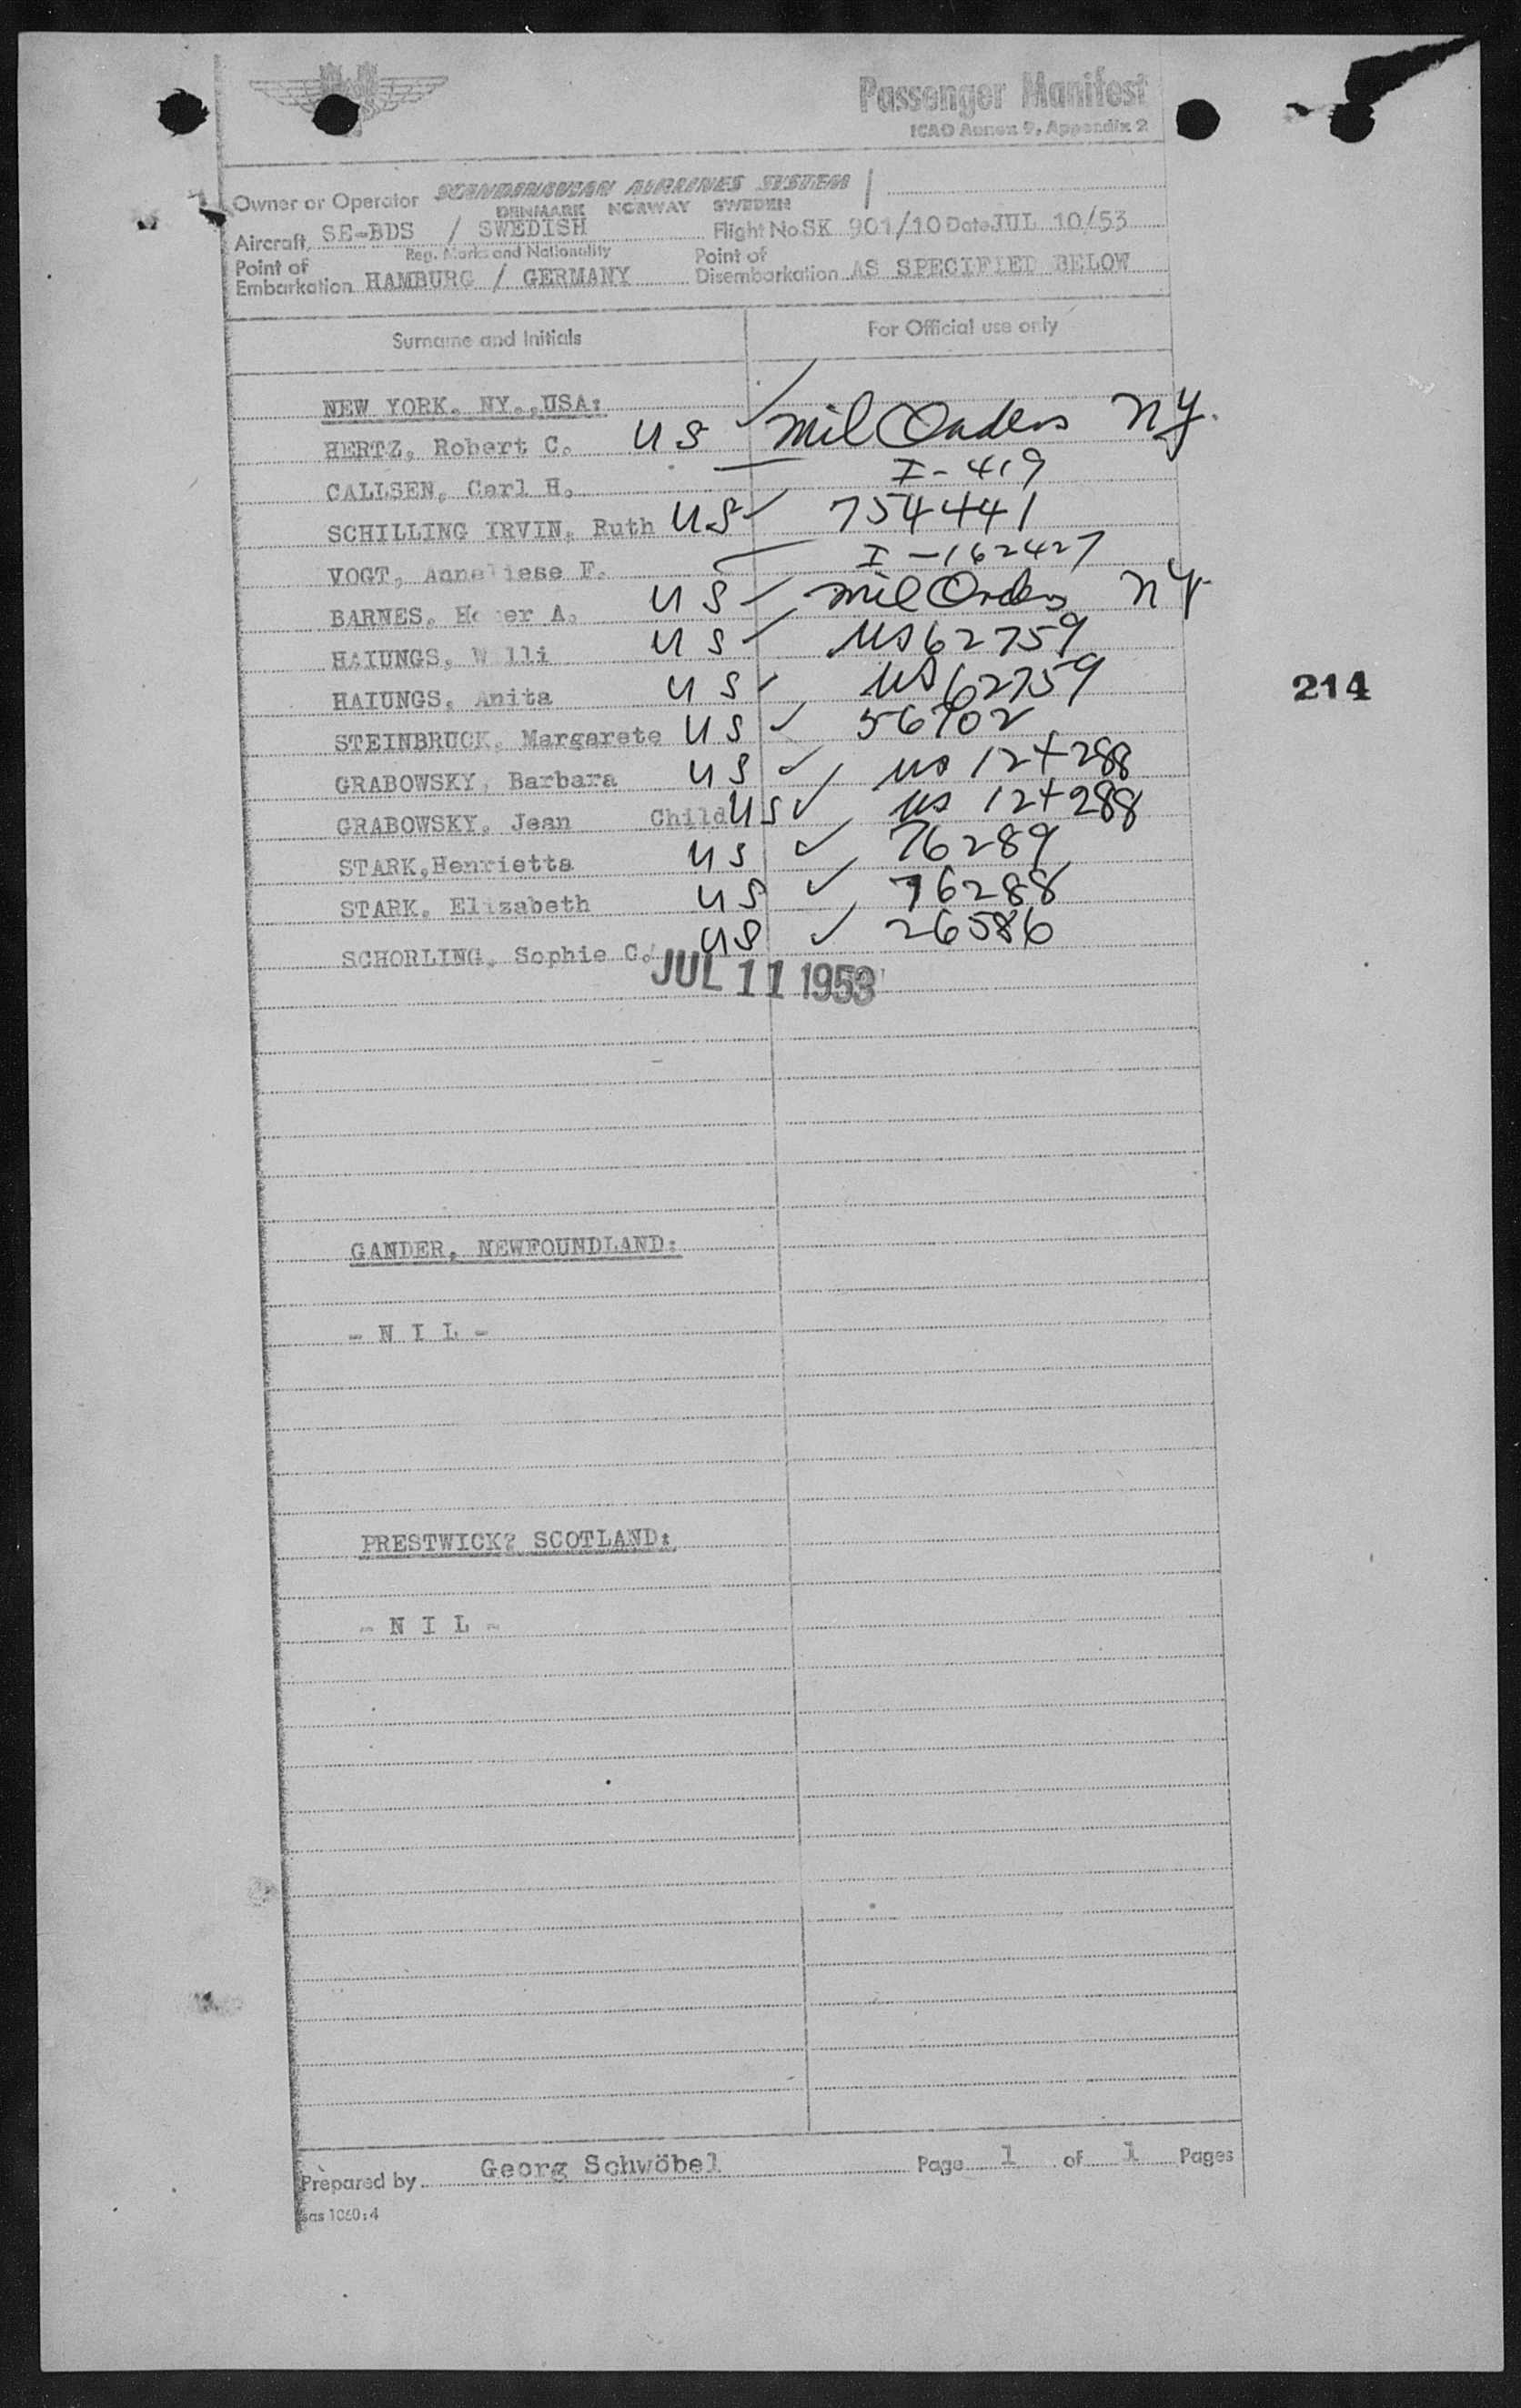 Passenger Manifest
ICAO Annex 9, Appendix 2
Owner or Operator SCANDINAVIAN AIRLINES SYSTEM
DENMARK NORWAY SWEDEN
Aircraft SE-BDS / SWEDISH Flight No SK 901/10 Date JUL 10/53
Reg. Marks and Nationality
Point of Embarkation HAMBURG / GERMANY Point of Disembarkation AS SPECIFIED BELOW
Surname and Initials For Official use only
NEW YORK, NY.,USA:
HERTZ, Robert C. US Mil Orders NY.
CALLSEN, Carl H. I-419
SCHILLING IRVIN, Ruth US 754441
VOGT, Anneliese F. I-162427
BARNES, A. US Mil Orders NY
HAIUNGS, Willi US US62759
HAIUNGS, Anita US US62759
STEINBRUCK, Margarete US 56702
GRABOWSKY, Barbara US US 124288
GRABOWSKY, Jean Child US US 124288
STARK,Henrietta US 76289
STARK, Elizabeth US 76288
SCHORLING, Sophie C. US 26586
JUL 11 1953
214
GANDER, NEWFOUNDLAND:
- N I L -
PRESTWICK? SCOTLAND:
- N I L -
Prepared by Georg Schwöbel Page 1 of 1 Pages
sas 1060:4